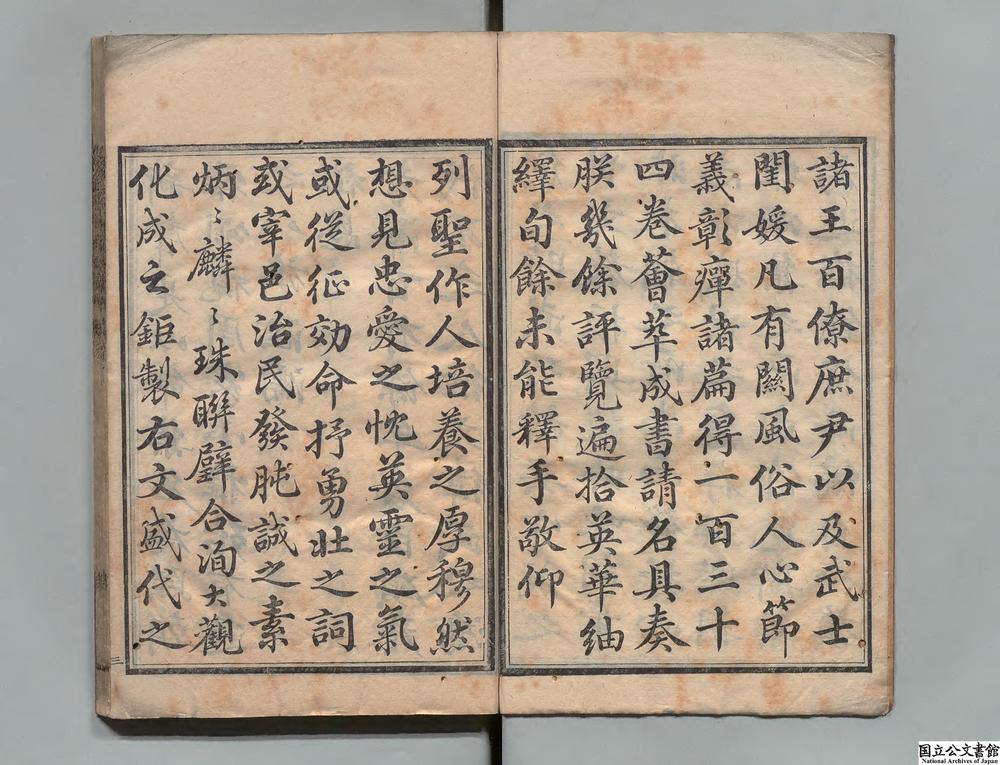 諸王百僚庶尹以及武士
閨媛凡有關風俗人心節
義彰癉諸篇得一百三十
四卷薈萃成書請名具奏
朕幾餘評覽遍拾英華紬
繹旬餘未能釋手敬仰
列聖作人培養之厚穆然
想見忠愛之忱英靈之氣
或從征効命抒勇壯之詞
或宰邑治民發肫誠之素
炳〻麟〻珠聯璧合洵大觀
化成之鉅製右文盛代之
三
国立公文書館
National Archives of Japan